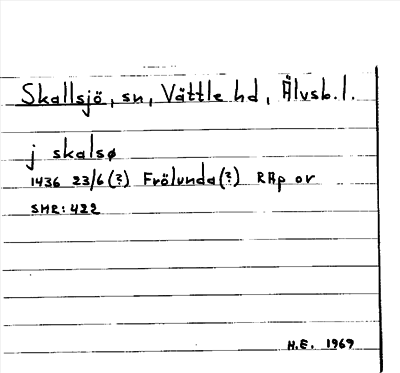 Skallsjö, sn, Vättle hd, Älvsb. l.
j skalsø
1436 23/6 (?) Frölunda (?) RAp or
SMR: 422
H.E. 1969